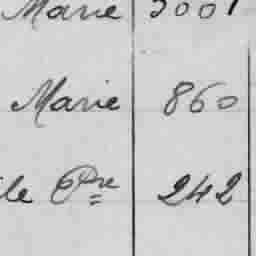 Marie 3001
Marie 860
le Pre 242